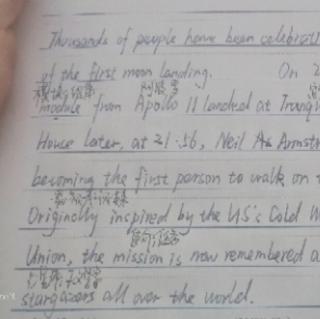 Thousands of people have been celebrati
of the first moon landing. On 2
module from Apollo 11 landed at Tranq
House later, at 21:56, Neil Armstr
becoming the first person to walk on
Originally inspired by the US's Cold W
Union, the mission is now remembered a
stargazers all over the world.